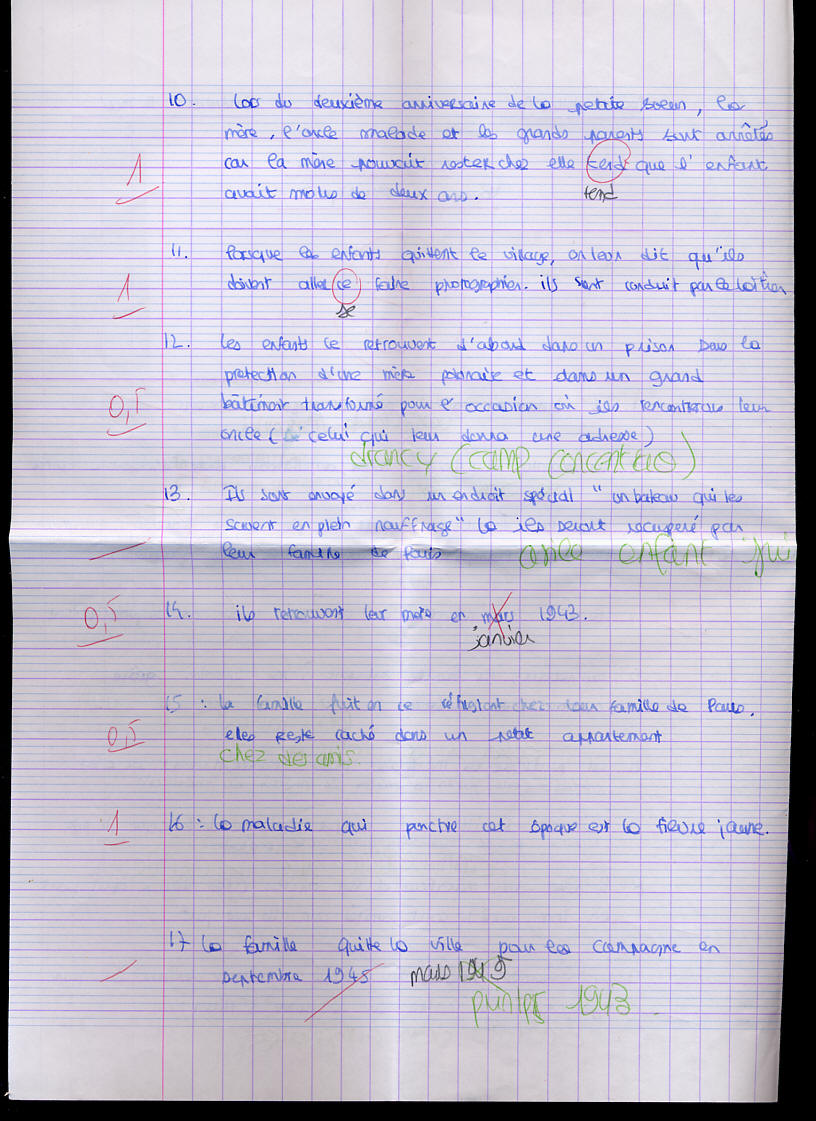 10. Lors du deuxième anniversaire de la petite soeur, la
mère, l'oncle malade et les grands parents sont arrêtés
1 car la mère pouvait rester chez elle tend que l'enfant
avait moins de deux ans. tend
11. Lorsque les enfants quittent le village, on leur dit qu'ils
1 doivent aller ce faire photographier. ils sont conduit par
se
12. Les enfants ce retrouvent d'abord dans un prison sous la
protection d'une mère polonaise et dans un grand
0,5 bâtiment transformé pour l'occasion où ils rencontrerons leur
oncle ( celui qui leur donna une adresse)
drancy (camp concentratio)
13. Ils sont envoyé dans un endroit spécial "un bateau qui les
sauvent en plein nauffrage" la ils seront récupéré par
leur famille de Paris enfant jui
0,5 14. ils retrouvent leur mère en mars 1943.
janvier
15 : la famille fuit en ce réfugiant chez leur famille de Paris.
0,5 elles reste caché dans un petit appartement
chez des amis.
1 16 : la maladie qui ponctue cet époque est la fièvre jaune.
17 La famille quitte la ville pour la campagne en
septembre 1945 mars 1945
printps 1943